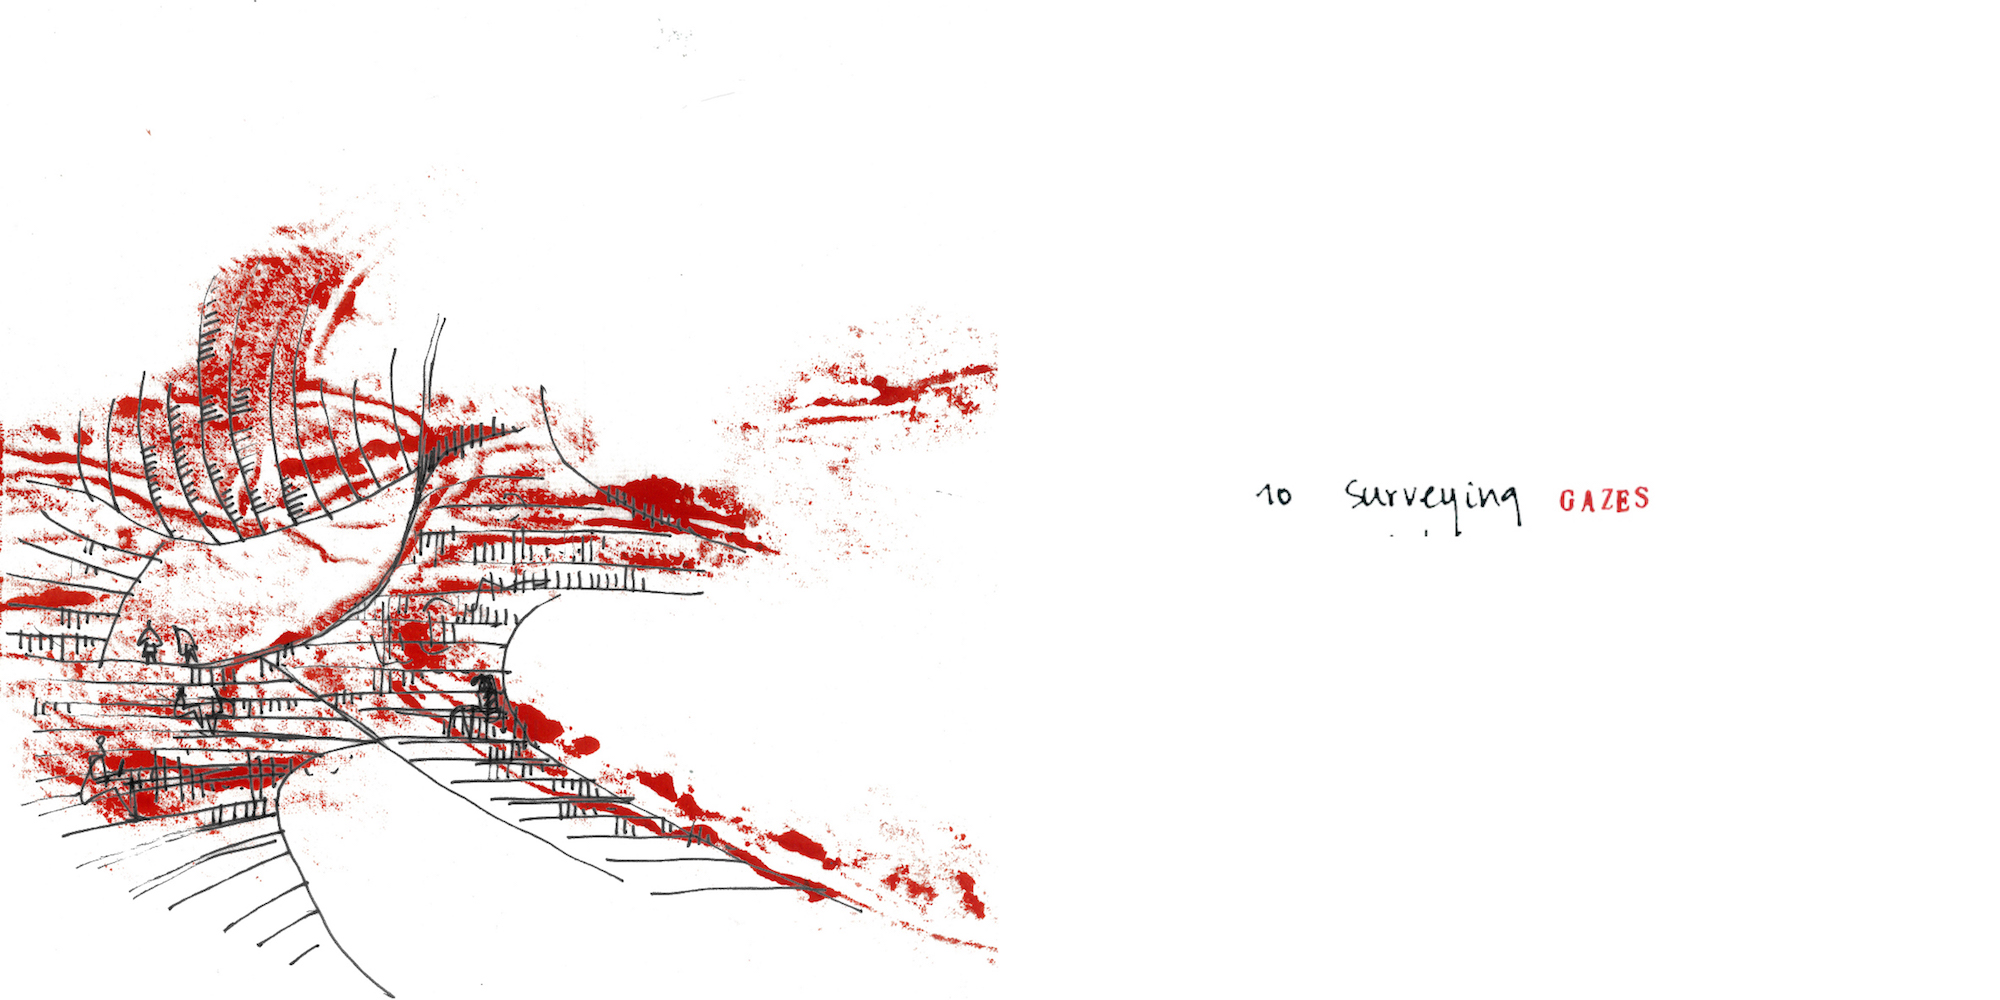 10 surveying GAZES